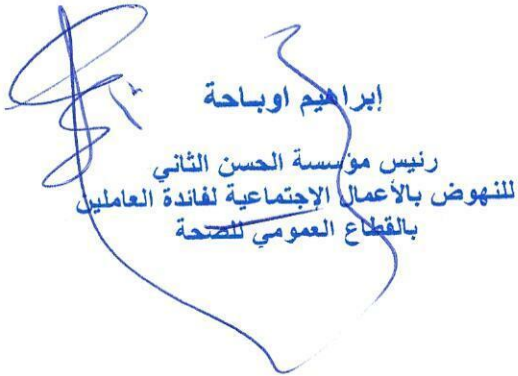 إبراهيم اوباحة
رئيس مؤسسة الحسن الثاني
للنهوض بالأعمال الإجتماعية لفائدة العاملين
بالقطاع العمومي للصحة